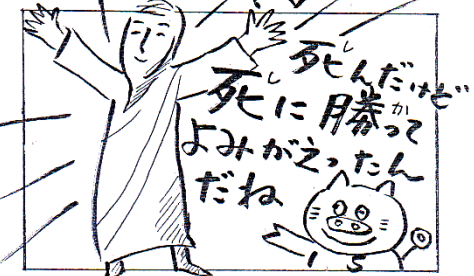 死んだけど
死に勝って
よみがえったん
だね